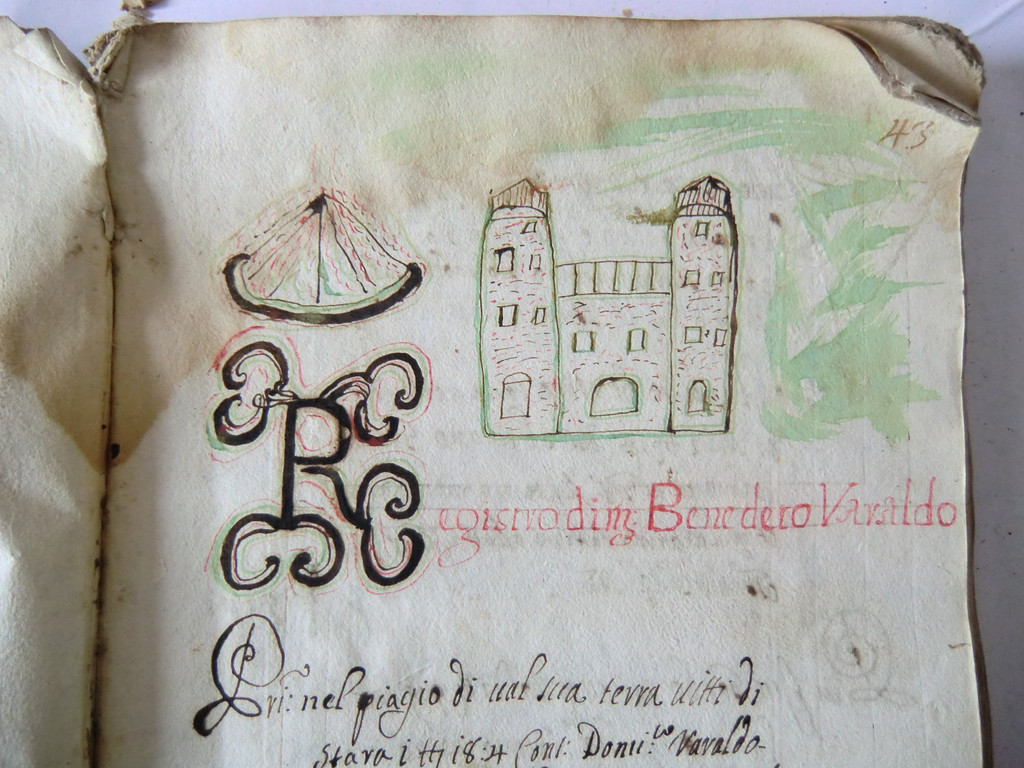 43
Registro di mg Benedeto Varaldo
Pri: nel piagio di ual sua terra uitti di
Stara i 18:4 Cont: Domi:co Varaldo-